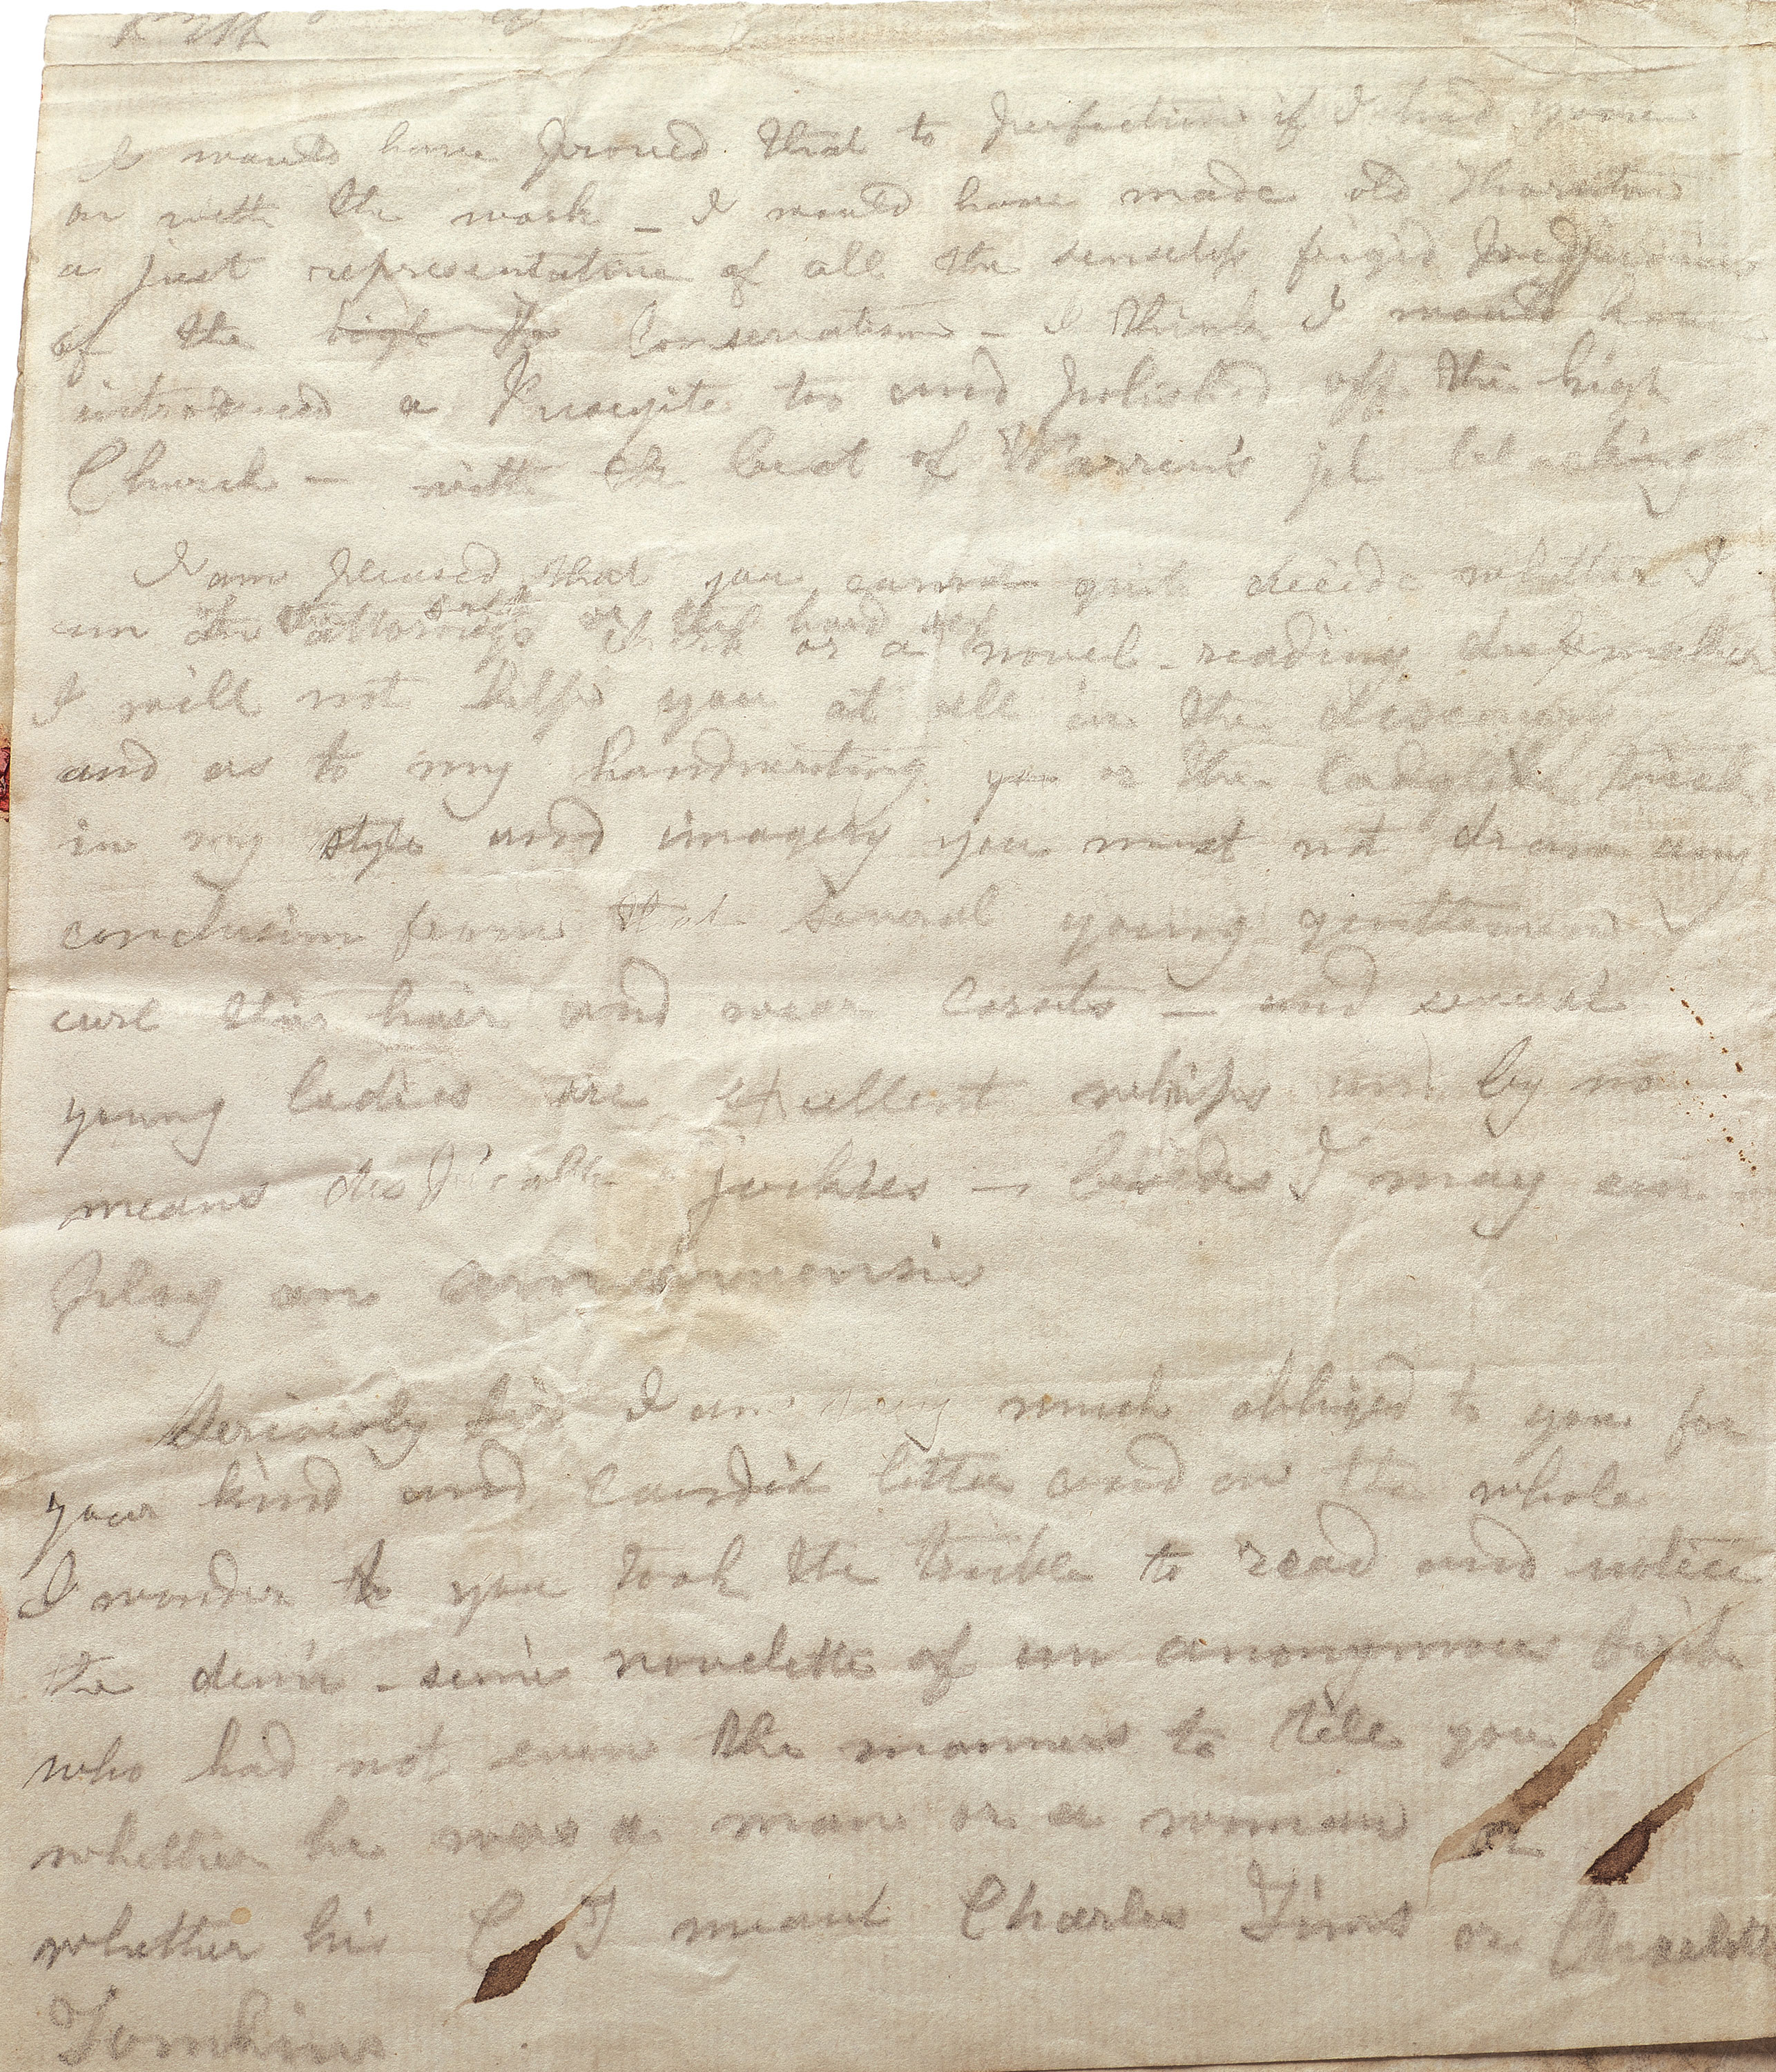 I would have proved that to perfection if I had gone
on with the work _ I would have made old Thornton
a just representative of all the senseless frigid prejudices
of the high To Conservatism _ I think I would have
introduced a Puseyite too and polished off the high
Church — with the best of Warren's jet blacking
I am pleased that you cannot quite decide whether I
am an attorney's clerk or a novel-reading dressmaker
I will not help you at all in the discovery
and as to my handwriting or the ladylike
in my style and imagery you must not draw any
conclusion from that Several young gentlemen
curl their hair and wear Corsets — and several
young ladies are excellent whips and by no
means despicable jockies — besides I may em
ploy an amanuensis
Seriously Sir I am very much obliged to you for
your kind and candid letter and on the whole
I wonder you took the trouble to read and notice
the demi-semi novelette of an anonymous
who had not even the manners to tell you
whether he was a man or a woman or
whether his C T meant Charles Tims or Charlotte
Tomkins